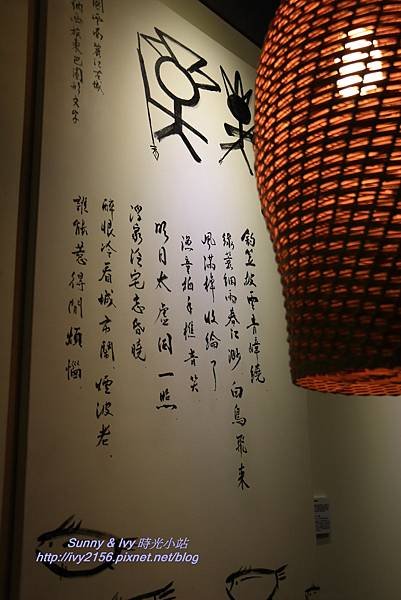 釣笠披雲青嶂繞
綠蓑細雨春江渺 白鳥飛來
風滿棹 收綸了
漁童拍手樵青笑
明月太虛同一照
浮家泛宅忘昏曉
醉眼冷看城市鬧、煙波老、
誰能惹得閒煩惱、
麗江古城
納西族東巴圖形文字
Sunny & Ivy 時光小站
http://ivy2156.pixnet.net/blog